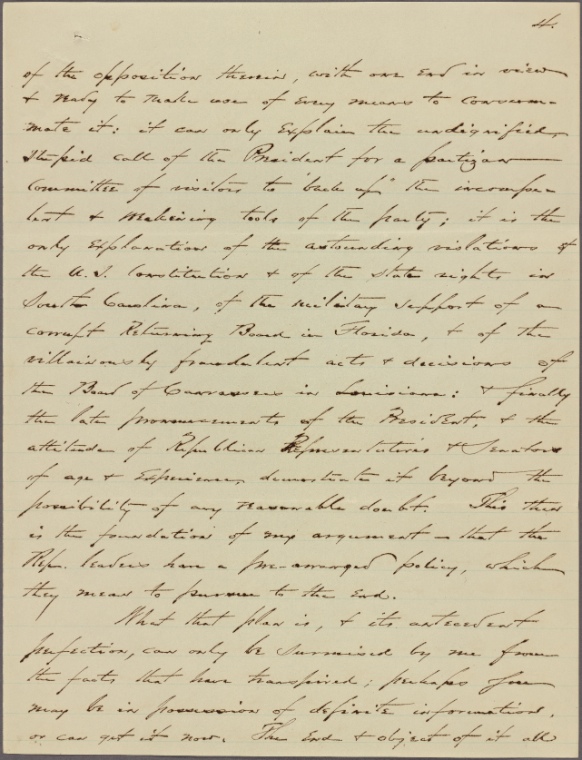 4.
of the opposition therein, with one end in view
& ready to make use of every means to consum-
mate it: it can only explain the undignified,
stupid call of the President for a partizan
Committee of visitors to "back up" the incompe-
tent & tools of the party; it is the
only explanation of the astounding violations of
the U.S. Constitution & of the State rights in
South Carolina, of the military support of a
corrupt Returning Board in Florida, & of the
villainously fraudulent acts & decisions of
the Board of Canvassers in Louisiana: & finally
the late pronouncements of the President & the
attitude of Republican Representatives & Senators
of age & experience, demonstrate it beyond the
possibility of any reasonable doubt. This then
is the foundation of my argument – that the
Rep. leaders have a pre-arranged policy, which
they mean to pursue to the end.
What that plan is, & its antecedent
perfection, can only be surmised by me from
the facts that have transpired; perhaps you
may be in possession of definite information,
or can get it now. The end & object of it all